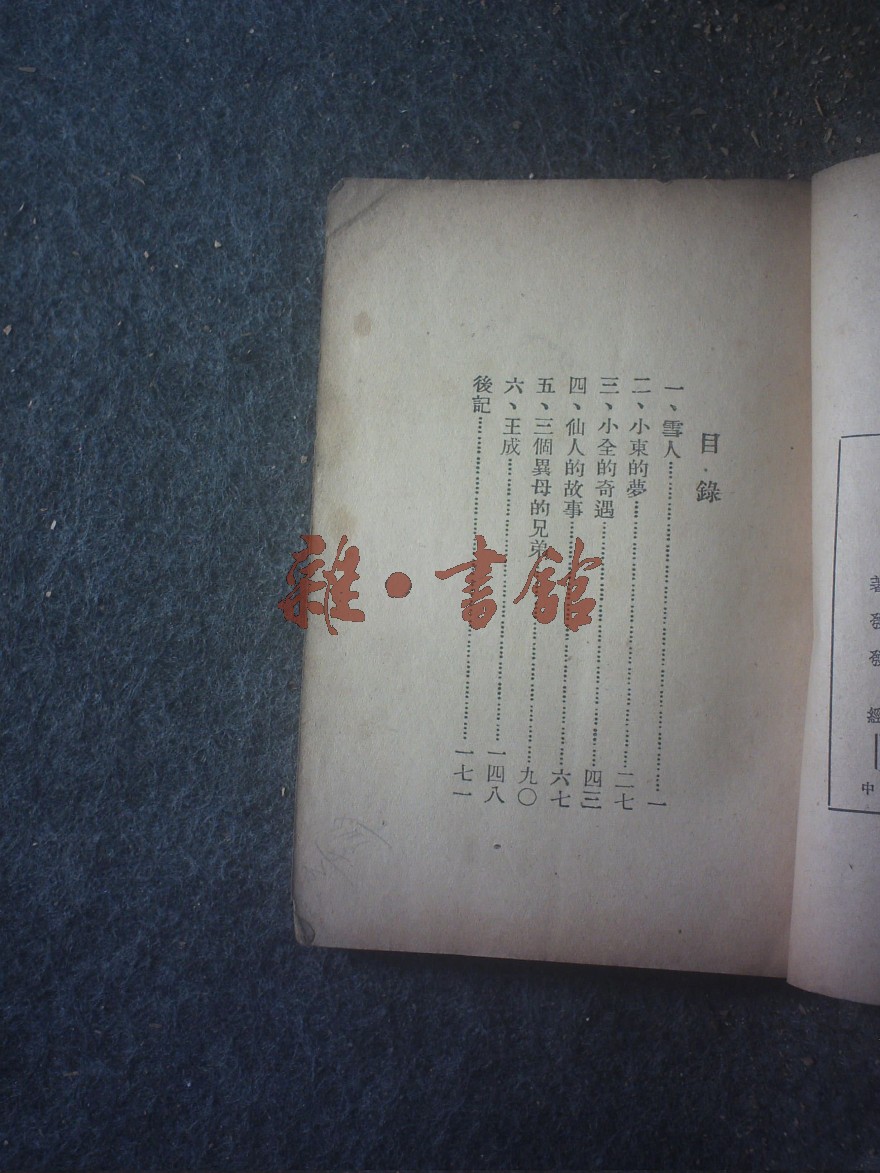 目錄
一、雪人……一
二、小東的夢……二七
三、小全的奇遇……四三
四、仙人的故事……六七
五、三個異母的兄弟……九〇
六、王成……一四八
後記……一七一
雜·書館
經
中